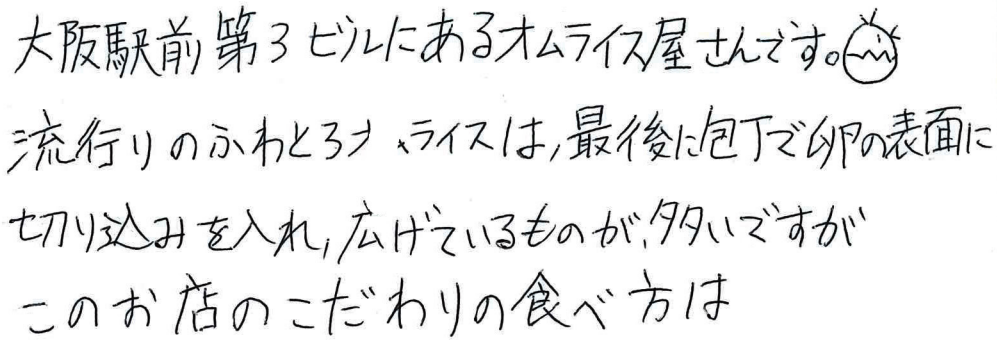 大阪駅前第3ビルにあるオムライス屋さんです。
流行りのふわとろオムライスは,最後に包丁で卵の表面に
切り込みを入れ,広げているものが,多いですが
このお店のこだわりの食べ方は